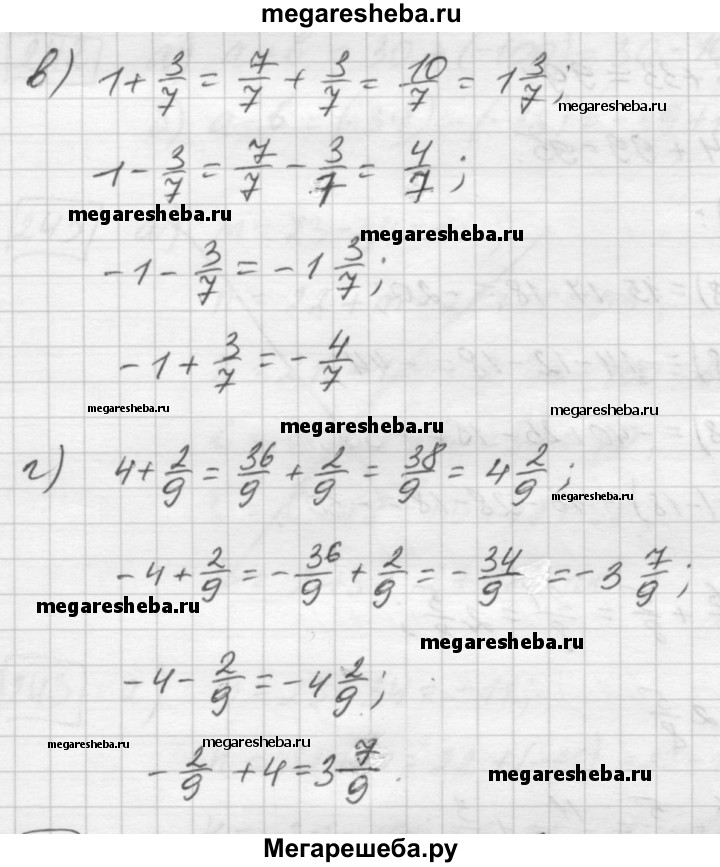 megaresheba.ru
в) 1 + 3/7 = 7/7 + 3/7 = 10/7 = 1 3/7;
megaresheba.ru
1 - 3/7 = 7/7 - 3/7 = 4/7;
megaresheba.ru
megaresheba.ru
-1 - 3/7 = -1 3/7;
-1 + 3/7 = -4/7
megaresheba.ru
megaresheba.ru
megaresheba.ru
г) 4 + 2/9 = 36/9 + 2/9 = 38/9 = 4 2/9;
megaresheba.ru
-4 + 2/9 = -36/9 + 2/9 = -34/9 = -3 7/9;
megaresheba.ru
megaresheba.ru
-4 - 2/9 = -4 2/9;
megaresheba.ru
megaresheba.ru
-2/9 + 4 = 3 7/9.
megaresheba.ru
Мегарешеба.ру